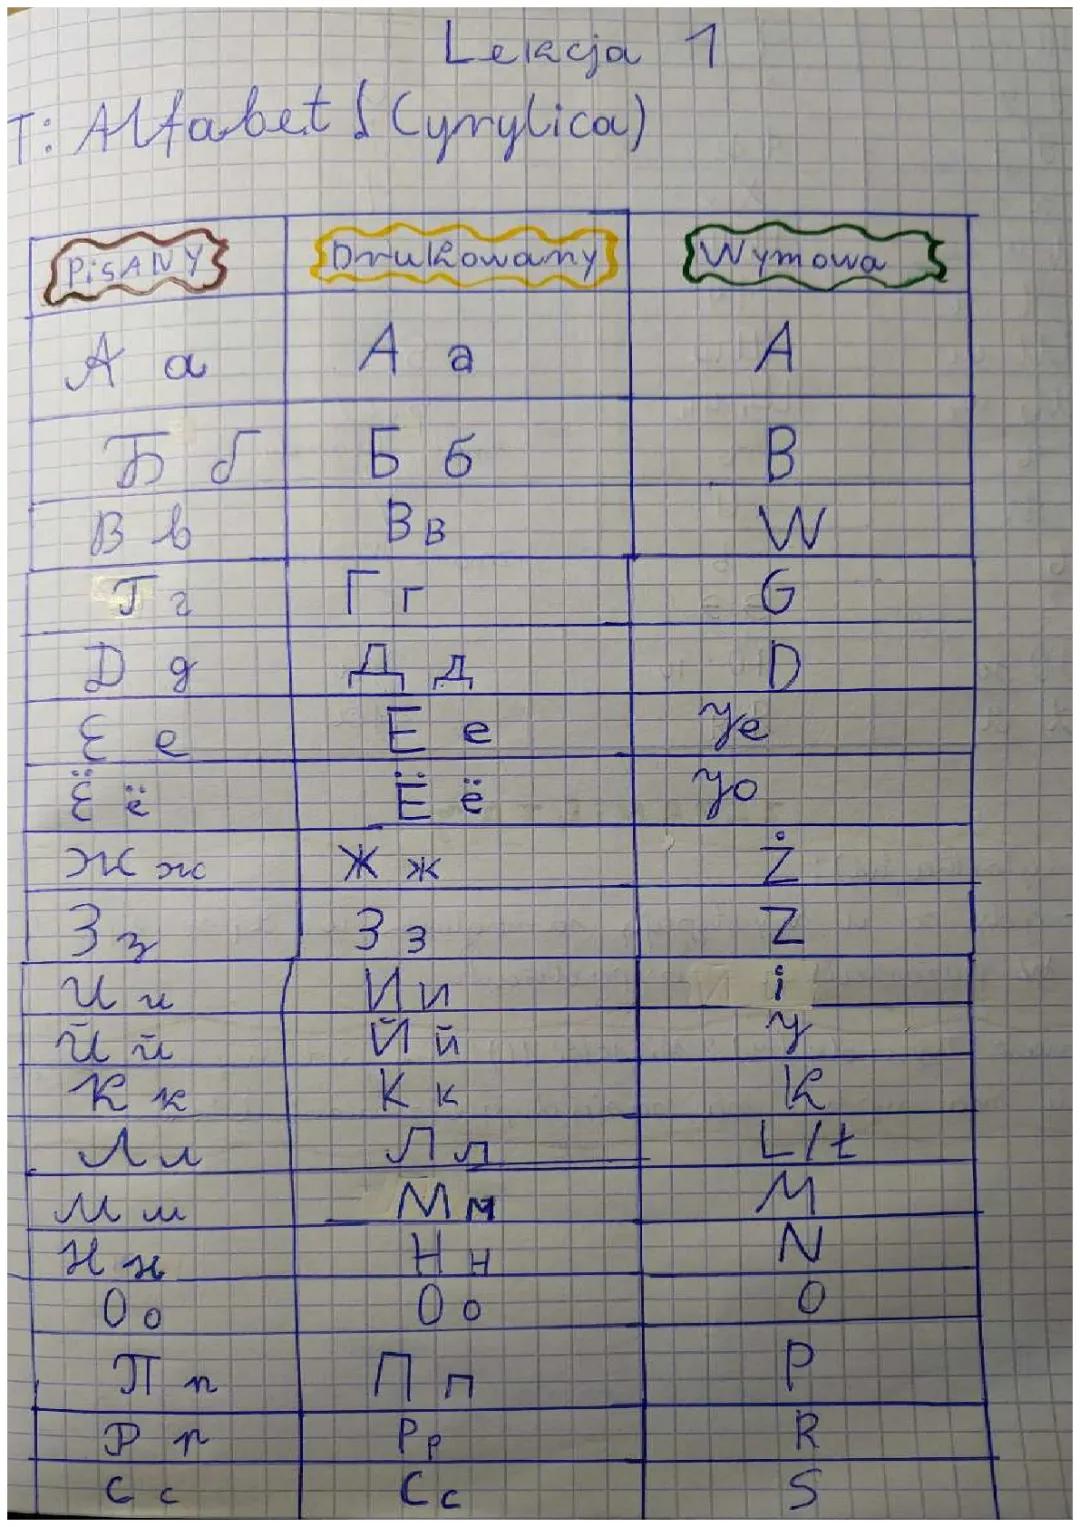 Lekcja 1
T: Alfabet (Cyrylica)
PiSANY Drukowany Wymowa
А а А а A
Б б Б б B
В в В в W
Г г Г г G
Д д Д д D
Е е Е е Ye
Ё ё Ё ё Yo
Ж ж Ж ж Ż
З з З з Z
И и И и i
Й й Й й y
К к К к K
Л л Л л L/ł
М м М м M
Н н Н н N
О о О о O
П п П п P
Р р Р р R
С с С с S